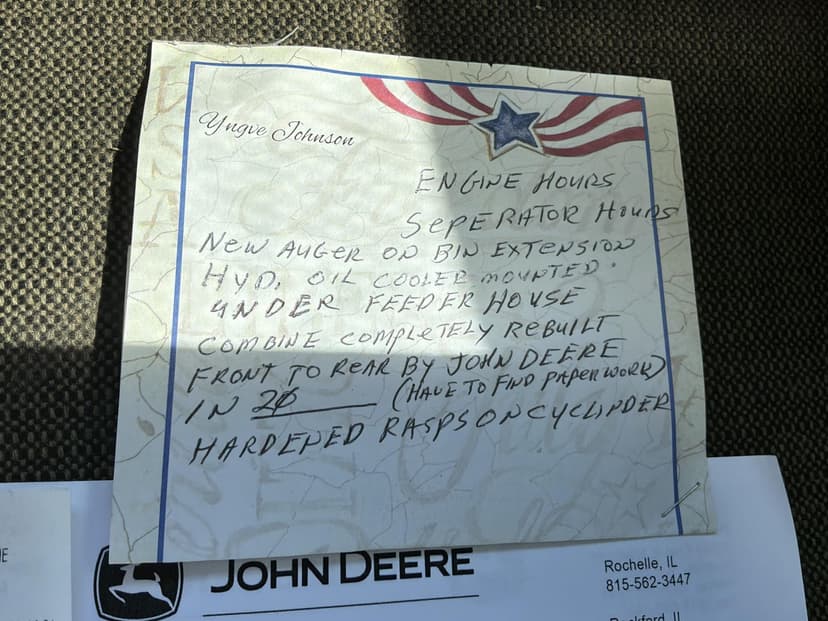 Yngve Johnson
ENGINE HOURS
SEPERATOR HOURS
NEW AUGER ON BIN EXTENSION
HYD. OIL COOLER MOUNTED.
UNDER FEEDER HOUSE
COMBINE COMPLETELY REBUILT
FRONT TO REAR BY JOHN DEERE
IN 20____ (HAVE TO FIND PAPERWORK)
HARDENED RASPS ON CYCLINDER
JOHN DEERE
Rochelle, IL
815-562-3447
Rockford, IL